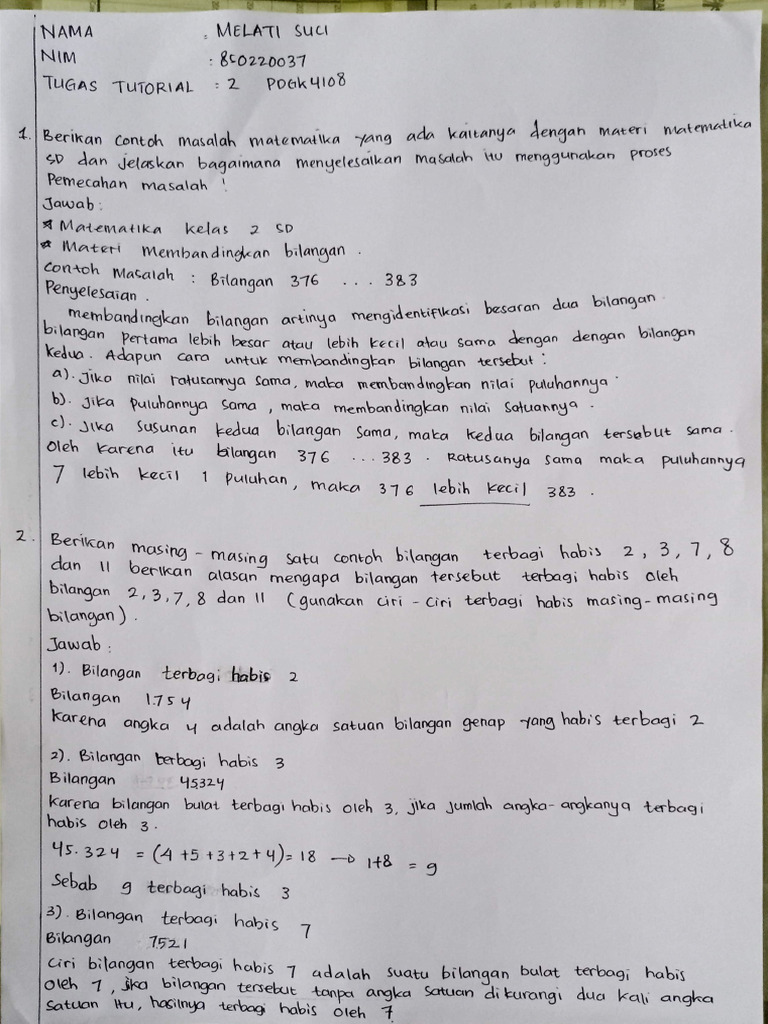 NAMA : MELATI SUCI
NIM : 850220037
TUGAS TUTORIAL : 2 PDGK4108
1. Berikan contoh masalah matematika yang ada kaitanya dengan materi matematika
SD dan jelaskan bagaimana menyelesaikan masalah itu menggunakan proses
Pemecahan masalah !
Jawab :
* Matematika kelas 2 SD
* Materi Membandingkan bilangan .
Contoh Masalah : Bilangan 376 ... 383
Penyelesaian .
membandingkan bilangan artinya mengidentifikasi besaran dua bilangan.
bilangan pertama lebih besar atau lebih kecil atau sama dengan dengan bilangan
kedua. Adapun cara untuk membandingkan bilangan tersebut :
a). Jika nilai ratusannya sama, maka membandingkan nilai puluhannya.
b). Jika puluhannya sama , maka membandingkan nilai satuannya .
c). Jika susunan kedua bilangan sama, maka kedua bilangan tersebut sama.
Oleh karena itu bilangan 376 ... 383 . Ratusanya sama maka puluhannya
7 lebih kecil 1 puluhan, maka 376 lebih kecil 383 .
2. Berikan masing-masing satu contoh bilangan terbagi habis 2, 3, 7, 8
dan 11 berikan alasan mengapa bilangan tersebut terbagi habis oleh
bilangan 2, 3, 7, 8 dan 11 (gunakan ciri-ciri terbagi habis masing-masing
bilangan) .
Jawab :
1). Bilangan terbagi habis 2
Bilangan 1.754
Karena angka 4 adalah angka satuan bilangan genap yang habis terbagi 2
2). Bilangan terbagi habis 3
Bilangan 45324
Karena bilangan bulat terbagi habis oleh 3, jika jumlah angka-angkanya terbagi
habis oleh 3.
45.324 = (4+5+3+2+4) = 18 → 1+8 = 9
Sebab 9 terbagi habis 3
3). Bilangan terbagi habis 7
Bilangan 7521
Ciri bilangan terbagi habis 7 adalah suatu bilangan bulat terbagi habis
oleh 7, jika bilangan tersebut tanpa angka satuan dikurangi dua kali angka
satuan itu, hasilnya terbagi habis oleh 7